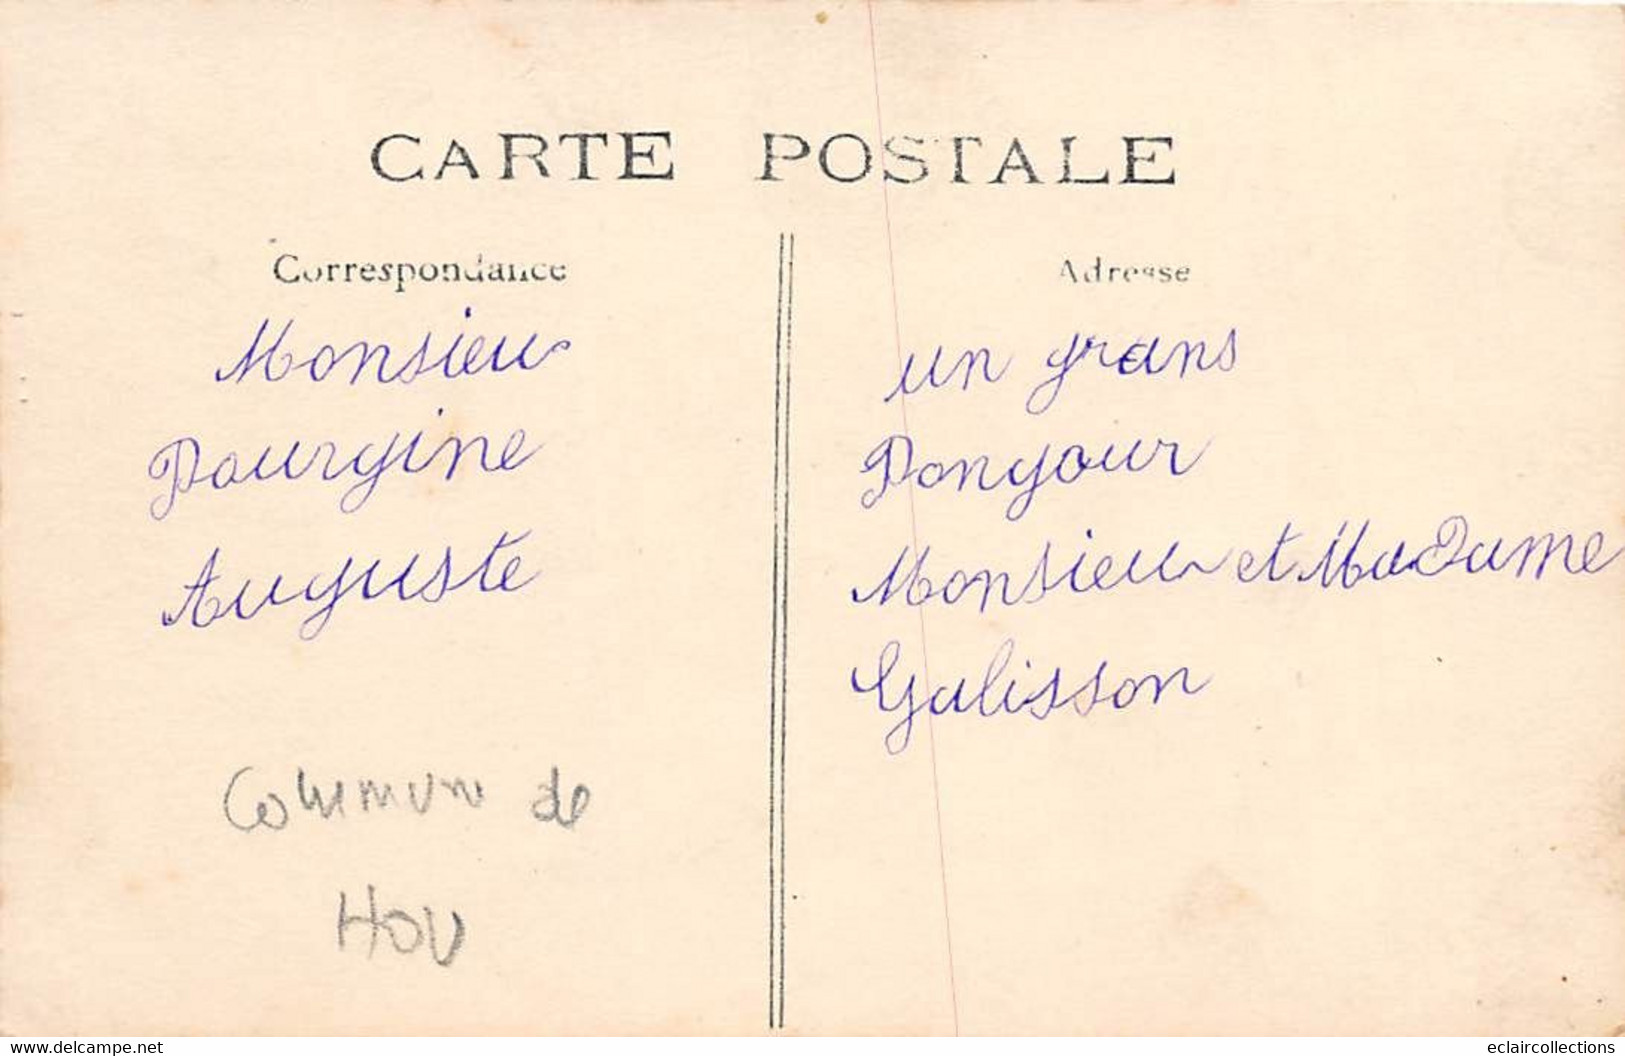 CARTE POSTALE
Correspondance
Monsieur
Pourgine
Auguste
Commune de
HOU
Adresse
un grans
Bonyour
Monsieur et MaDame
Galisson
www.delcampe.net
eclaircollections